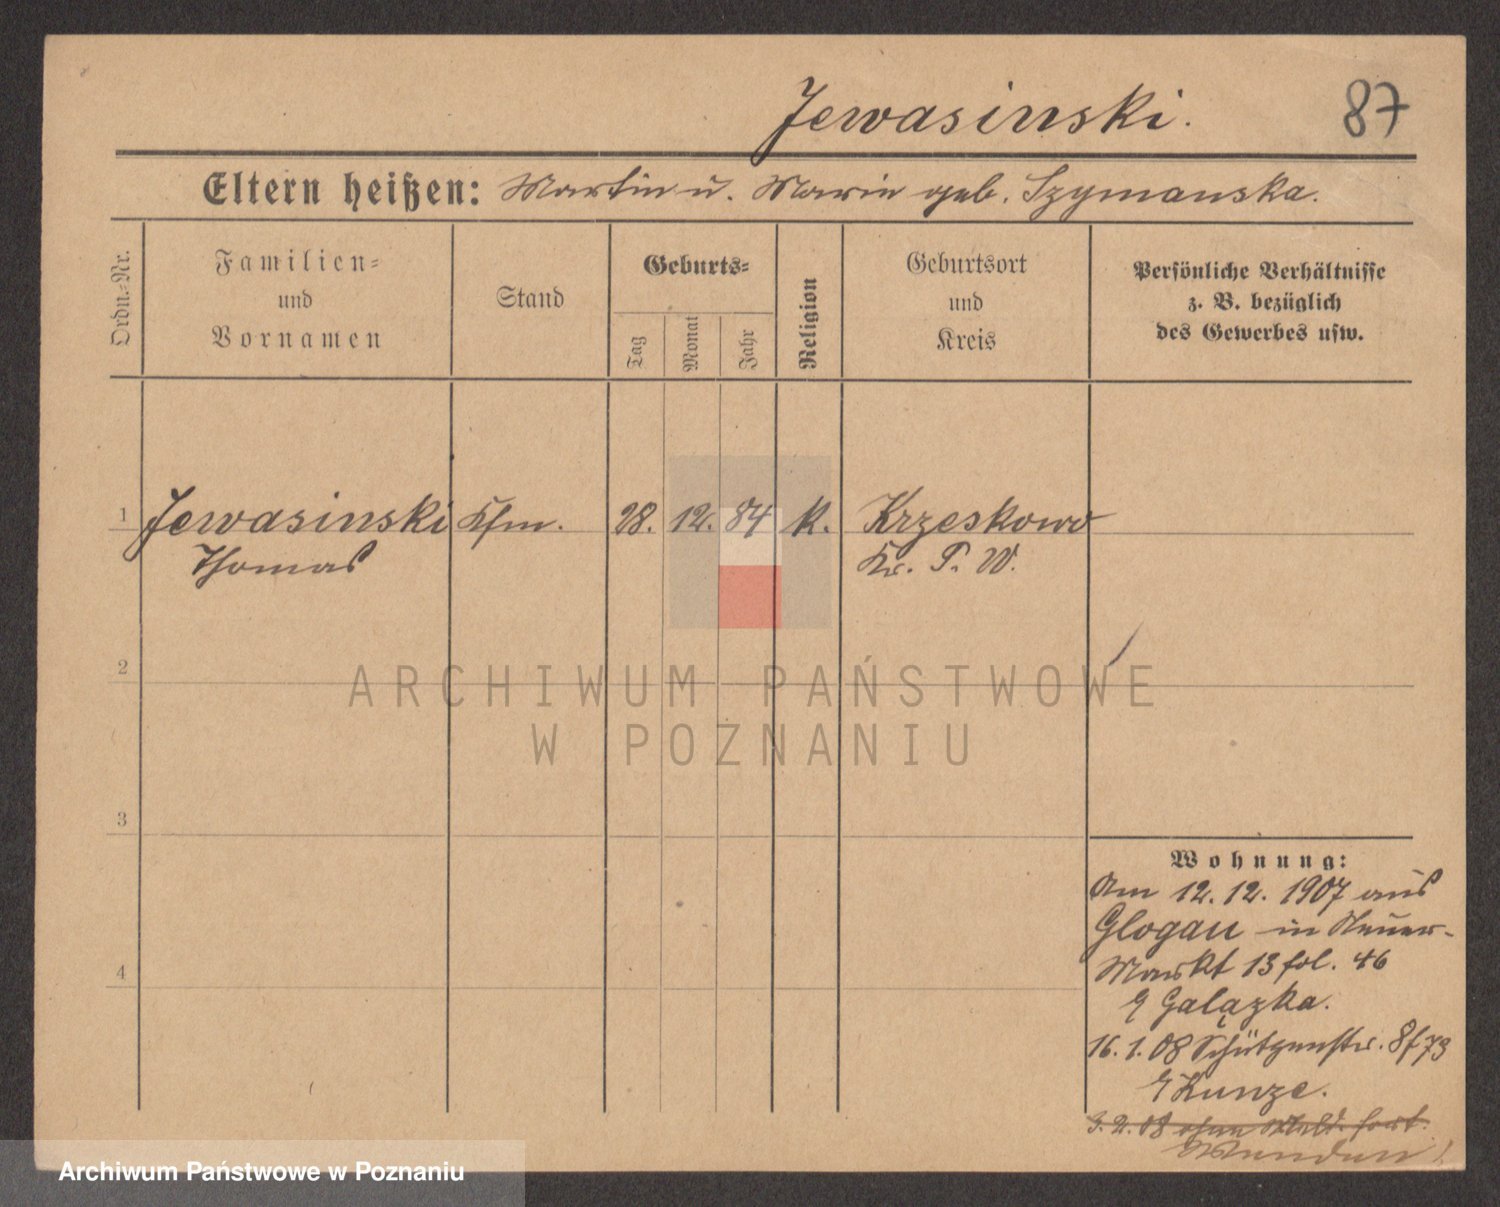 Jewasinski.
87
Eltern heißen: Martin u. Marie geb. Szymanska.
Ordn.-Nr.
Familien-
und
Vornamen
Stand
Geburts-
Tag
Monat
Jahr
Religion
Geburtsort
und
Kreis
Persönliche Verhältnisse
z. B. bezüglich
des Gewerbes usw.
1 Jewasinski Kfm. 28. 12. 84 k. Krzeskowo
Thomas Kr. P. W.
2
ARCHIWUM PAŃSTWOWE
W POZNANIU
3
Wohnung:
Am 12. 12. 1907 aus
Glogau in Neuer-
4
Markt 13 fol. 46
Galązka.
16. 1. 08 Schützenstr. 8 f 73
Kunze.
3. 2. 08 ohne Meld. fort.
Archiwum Państwowe w Poznaniu